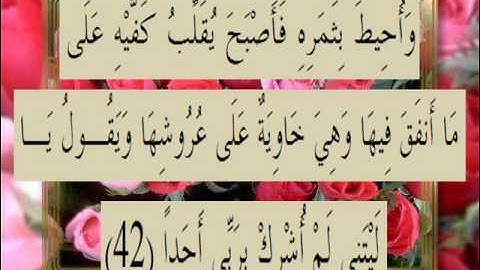 وَأُحِيطَ بِثَمَرِهِ فَأَصْبَحَ يُقَلِّبُ كَفَّيْهِ عَلَى
مَا أَنفَقَ فِيهَا وَهِيَ خَاوِيَةٌ عَلَى عُرُوشِهَا وَيَقُولُ يَا
لَيْتَنِي لَمْ أُشْرِكْ بِرَبِّي أَحَداً (42)